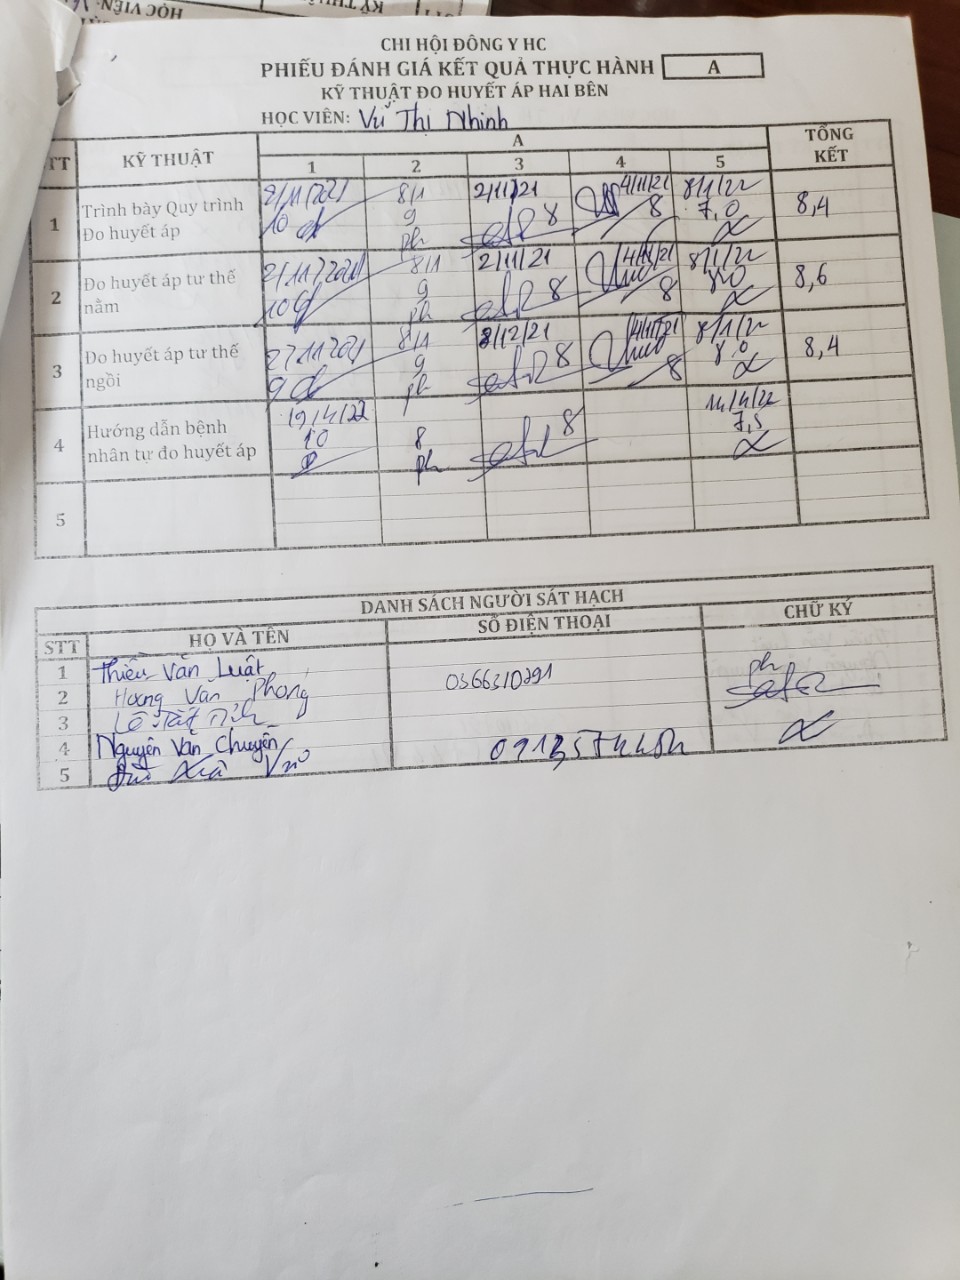 HỌC VIÊN:
KỸ THUẬT
STT
CHI HỘI ĐÔNG Y HC
PHIẾU ĐÁNH GIÁ KẾT QUẢ THỰC HÀNH A
KỸ THUẬT ĐO HUYẾT ÁP HAI BÊN
HỌC VIÊN: Vũ Thị Nhinh
TT KỸ THUẬT A TỔNG KẾT
1 2 3 4 5
1 Trình bày Quy trình Đo huyết áp
2/11/2021 10
8/1 9 ph
2/11/21 8
4/11/21 8
8/1/22 7,0
8,4
2 Đo huyết áp tư thế nằm
2/11/2021 10
8/1 9 ph
2/11/21 8
4/11/21 8
8/1/22
8,6
3 Đo huyết áp tư thế ngồi
2/11/2021 9
8/1 9 ph
2/12/21 8
4/11/21 8
8/1/22 8,0
8,4
4 Hướng dẫn bệnh nhân tự đo huyết áp
19/4/22 10
8 ph
8
14/4/22 7,5
5
DANH SÁCH NGƯỜI SÁT HẠCH
STT HỌ VÀ TÊN SỐ ĐIỆN THOẠI CHỮ KÝ
1 Thiều Văn Luật
2 Hương Văn Phong 0366310291 ph
3 Lê Tất
4 Nguyễn Văn Chuyên
5